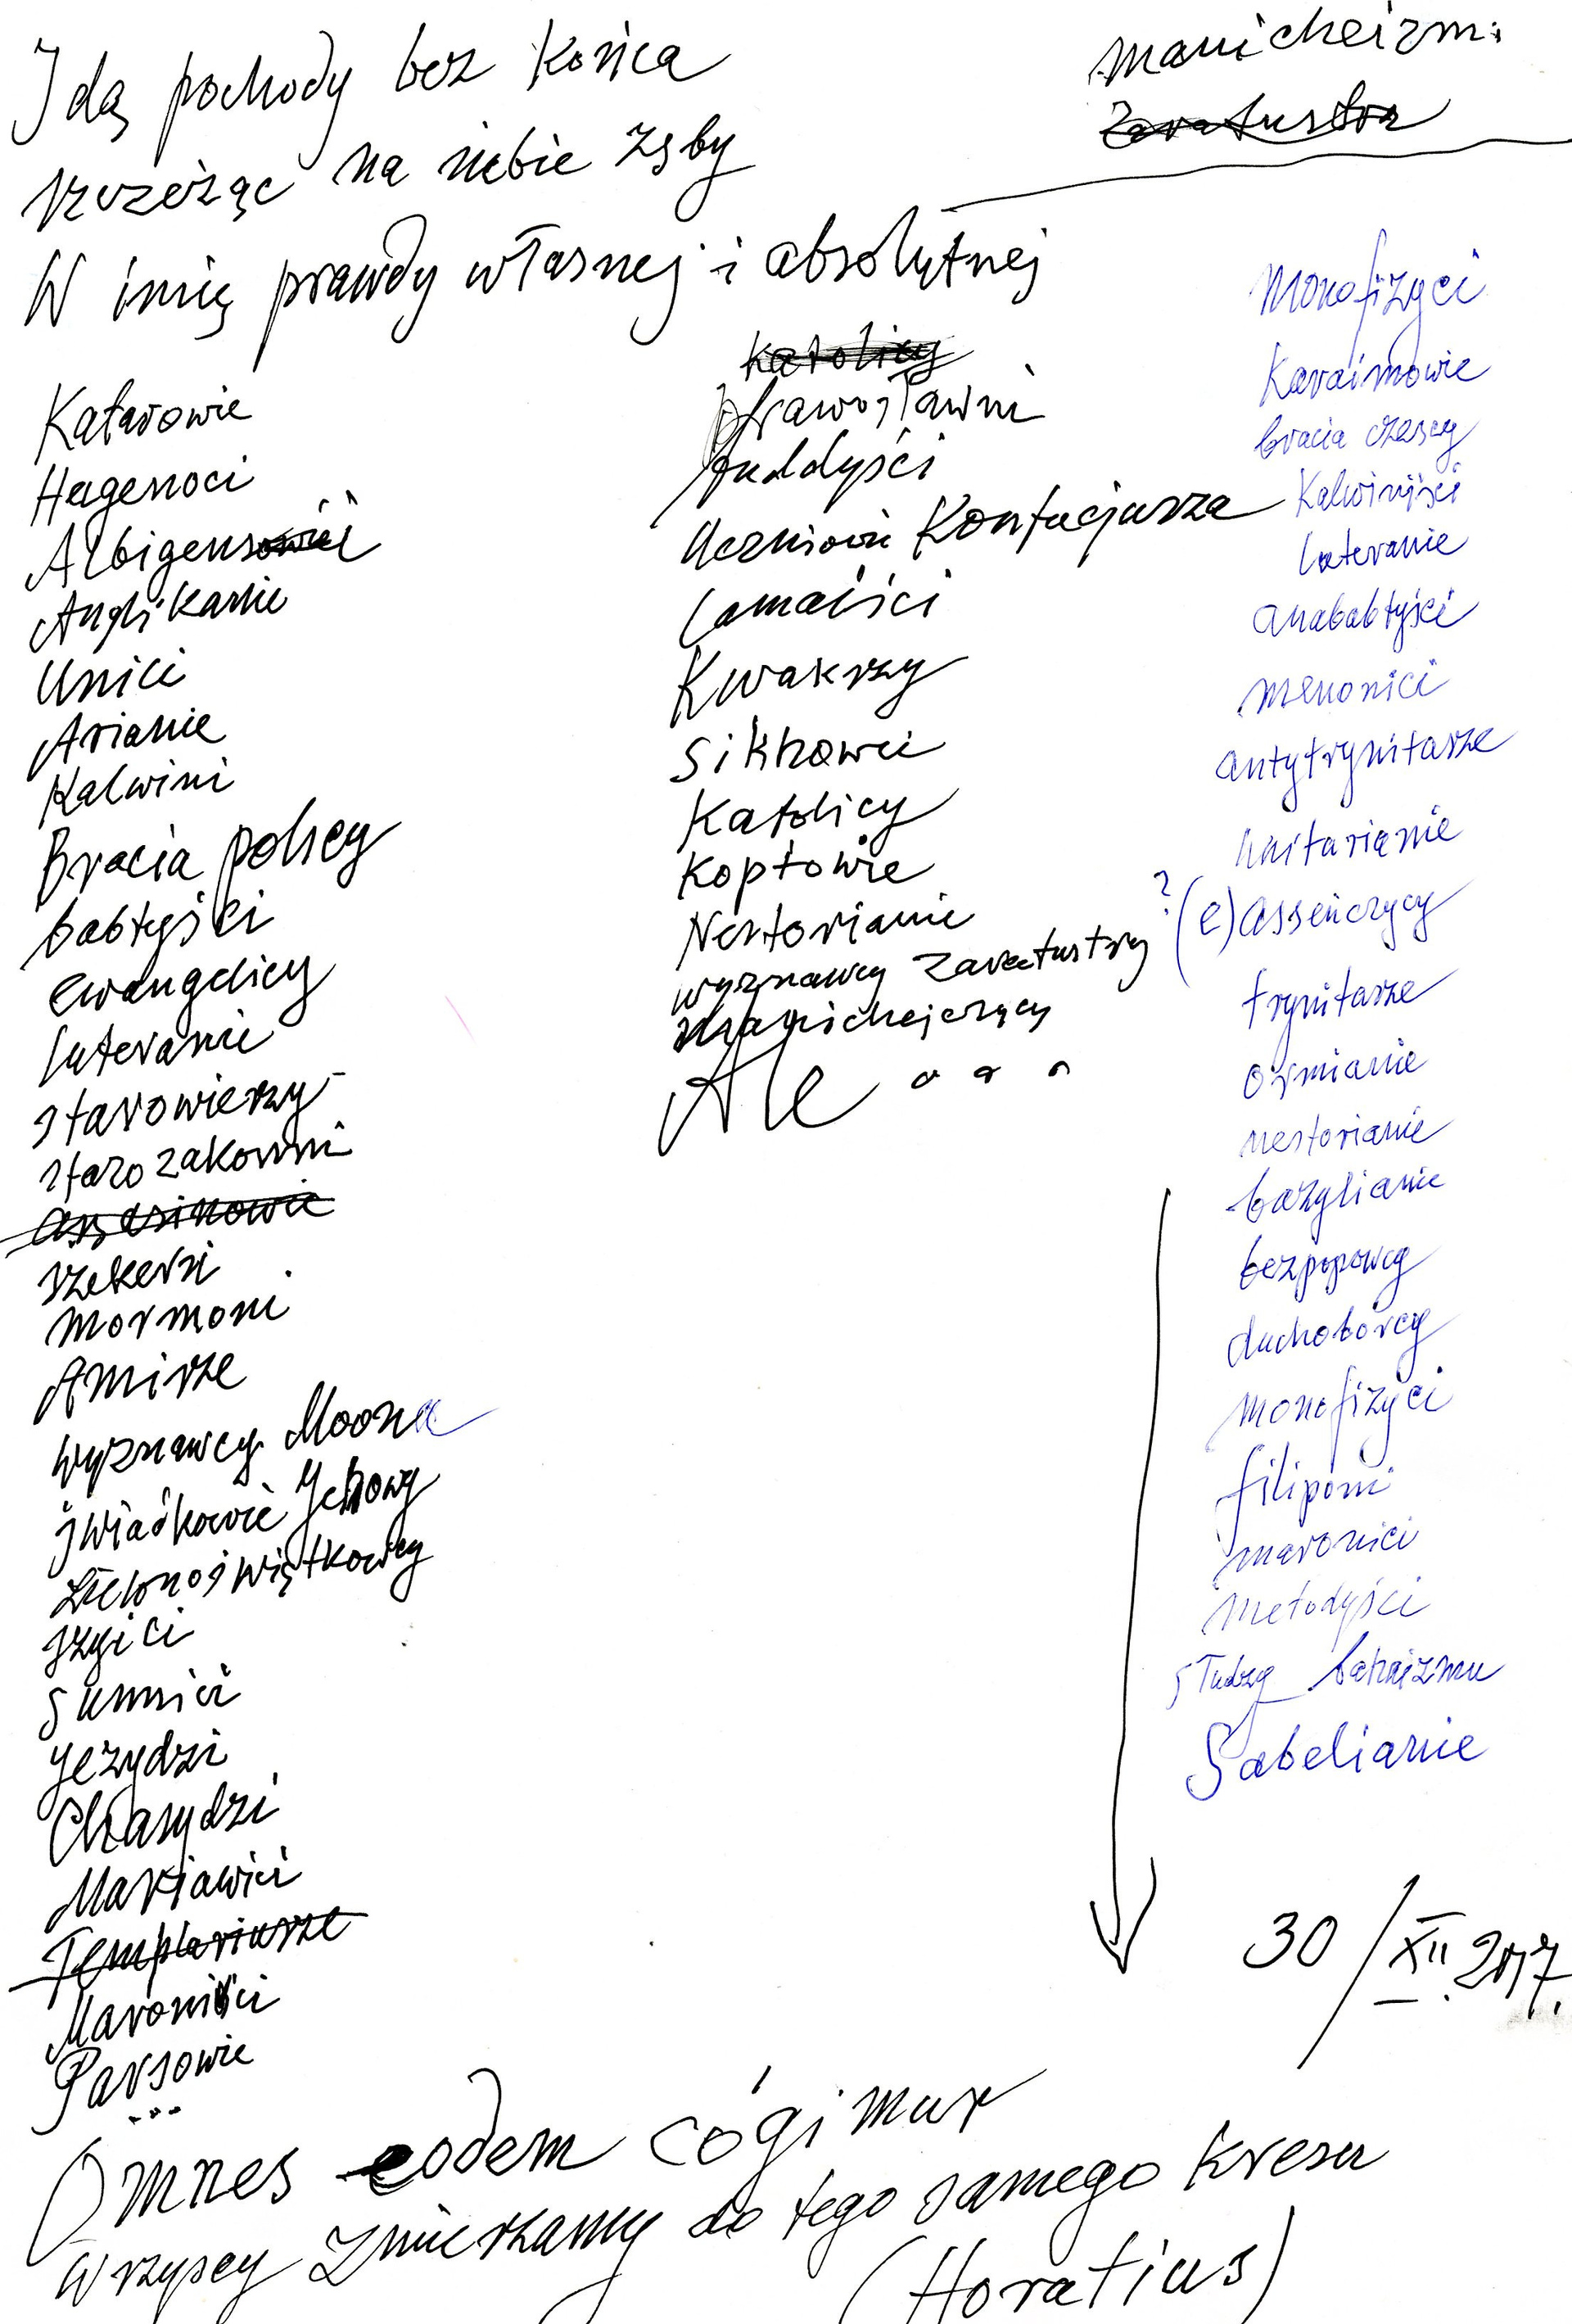 Idą pochody bez końca
szczerząc na niebie zęby
W imię prawdy własnej i absolutnej
manicheizm:
Zaratustra
Katarowie
Hugenoci
Albigensi
Anglikanie
Unici
Arianie
Kalwini
Bracia polscy
babtyści
ewangelicy
luteranie
starowierzy
starozakonni
assasinowie
szekerzi
Mormoni
Amisze
wyznawcy Moona
świadkowie Jehowy
zielonoświątkowcy
szyici
sunnici
jezydzi
Chasydzi
Mariawici
Templariusze
Maronici
Parsowie
...
katolicy
prawosławni
buddyści
uczniowie Konfucjusza
lamaiści
Kwakrzy
Sikhowie
Katolicy
Koptowie
Nestorianie
wyznawcy Zaratustry
manichejczycy
Ale ...
monofizyci
Karaimowie
bracia czescy
Kalwiniści
luteranie
anababtyści
menonici
antytrynitarze
unitarianie
? (e) asseńczycy
trynitarze
ormianie
nestorianie
bazylianie
bezpopowcy
duchoborcy
monofizyci
filiponi
maronici
metodyści
słudzy bahaizmu
Sabelianie
30/XII.2017.
Omnes eodem cógimur
Wszyscy zmierzamy do tego samego kresu
(Horatius)